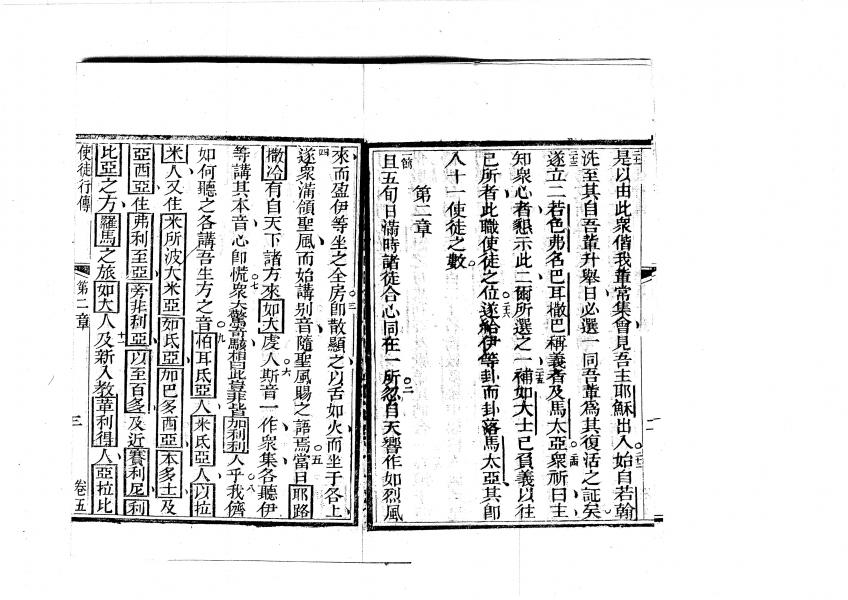 是以由此衆偕我輩常集會見吾主耶穌出入始自若翰
洗至其自吾輩升舉日必選一同吾輩為其復活之証矣
遂立二若色弗名巴耳撒巴稱義者及馬太亞衆祈曰主
知衆心者懇示此二爾所選之一補如大士已負義以往
己所者此職使徒之位遂給伊等卦而卦落馬太亞其即
入十一使徒之數
第二章
且五旬日滿時諸徒合心同在一所忽自天響作如烈風
來而盈伊等坐之全房即散顯之以舌如火而坐于各上
遂衆滿領聖風而始講别音隨聖風賜之語焉當日耶路
撒冷有自天下諸方來如大虔人斯音一作衆集各聽伊
等講其本音心即慌衆大驚竒駭相曰此豈非皆加利利人乎我儕
如何聽之各講吾生方之音栢耳氐亞人米氐亞人以拉
米人又住米所波大米亞如氐亞加巴多西亞本多士及
亞西亞住弗利至亞旁非利亞以至百多及近賽利尼利
比亞之方羅馬之旅如大人及新入教革利得人亞拉比
使徒行傳
第二章
三
卷五